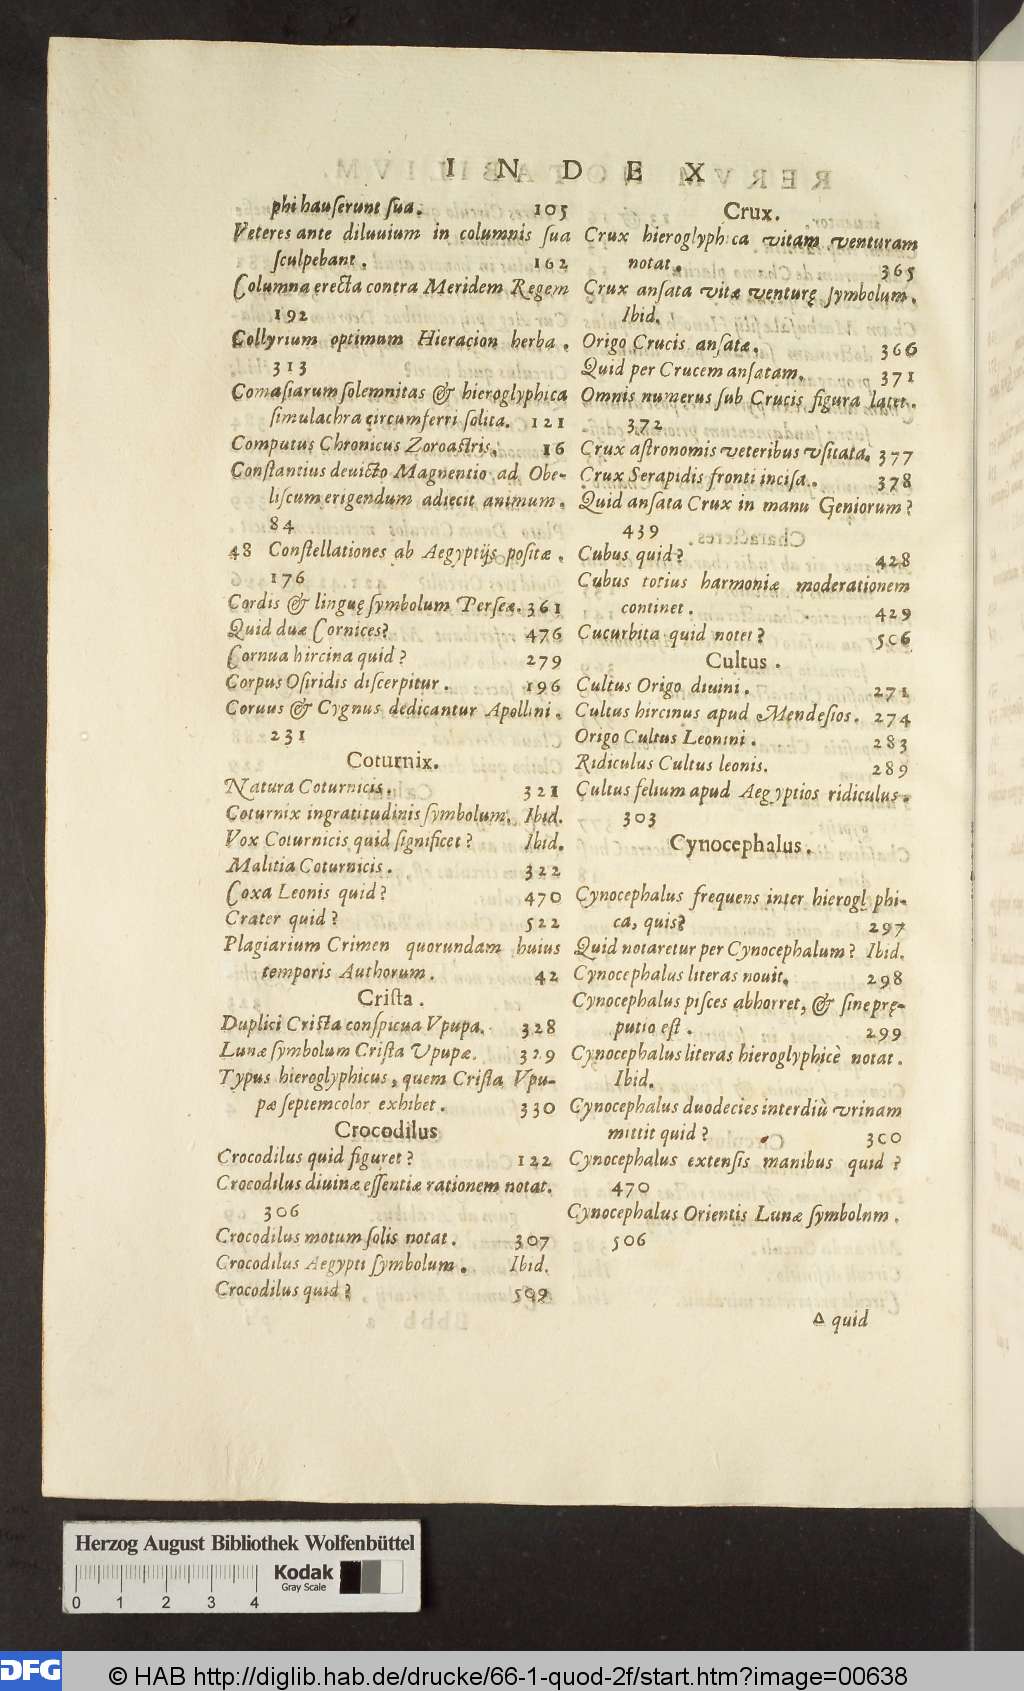 INDEX
phi hauſerunt ſua. 105
Veteres ante diluuium in columnis ſua
ſculpebant. 162
Columna erecta contra Meridem Regem
192
Collyrium optimum Hieracion herba.
313
Comaſiarum ſolemnitas & hieroglyphica
ſimulachra circumferri ſolita. 121
Computus Chronicus Zoroaſtris. 16
Conſtantius deuicto Magnentio ad Obe-
liſcum erigendum adiecit animum.
84
48 Conſtellationes ab Aegyptijs poſitæ.
176
Cordis & linguę ſymbolum Perſeæ. 361
Quid duæ Cornices? 476
Cornua hircina quid? 279
Corpus Oſiridis diſcerpitur. 196
Coruus & Cygnus dedicantur Apollini.
231
Coturnix.
Natura Coturnicis. 321
Coturnix ingratitudinis ſymbolum. Ibid.
Vox Coturnicis quid ſignificet? Ibid.
Malitia Coturnicis. 322
Coxa Leonis quid? 470
Crater quid? 522
Plagiarium Crimen quorundam huius
temporis Authorum. 42
Criſta.
Duplici Criſta conſpicua Vpupa. 328
Lunæ ſymbolum Criſta Vpupæ. 329
Typus hieroglyphicus, quem Criſta Vpu-
pæ ſeptemcolor exhibet. 330
Crocodilus
Crocodilus quid figuret? 122
Crocodilus diuinæ eſſentiæ rationem notat.
306
Crocodilus motum ſolis notat. 307
Crocodilus Aegypti ſymbolum. Ibid.
Crocodilus quid? 509
Crux.
Crux hieroglyphica vitam venturam
notat. 365
Crux anſata vitæ venturę ſymbolum.
Ibid.
Origo Crucis anſatæ. 366
Quid per Crucem anſatam. 371
Omnis numerus ſub Crucis figura latet.
372
Crux aſtronomis veteribus vſitata. 377
Crux Serapidis fronti inciſa. 378
Quid anſata Crux in manu Geniorum?
439
Cubus quid? 428
Cubus totius harmoniæ moderationem
continet. 429
Cucurbita quid notet? 506
Cultus.
Cultus Origo diuini. 271
Cultus hircinus apud Mendeſios. 274
Origo Cultus Leonini. 283
Ridiculus Cultus leonis. 289
Cultus felium apud Aegyptios ridiculus.
303
Cynocephalus.
Cynocephalus frequens inter hieroglyphi-
ca, quis? 297
Quid notaretur per Cynocephalum? Ibid.
Cynocephalus literas nouit. 298
Cynocephalus piſces abhorret, & ſine prę-
putio eſt. 299
Cynocephalus literas hieroglyphicè notat.
Ibid.
Cynocephalus duodecies interdiù vrinam
mittit quid? 300
Cynocephalus extenſis manibus quid?
470
Cynocephalus Orientis Lunæ ſymbolum.
506
Δ quid
Herzog August Bibliothek Wolfenbüttel
Kodak
Gray Scale
0 1 2 3 4
DFG © HAB http://diglib.hab.de/drucke/66-1-quod-2f/start.htm?image=00638